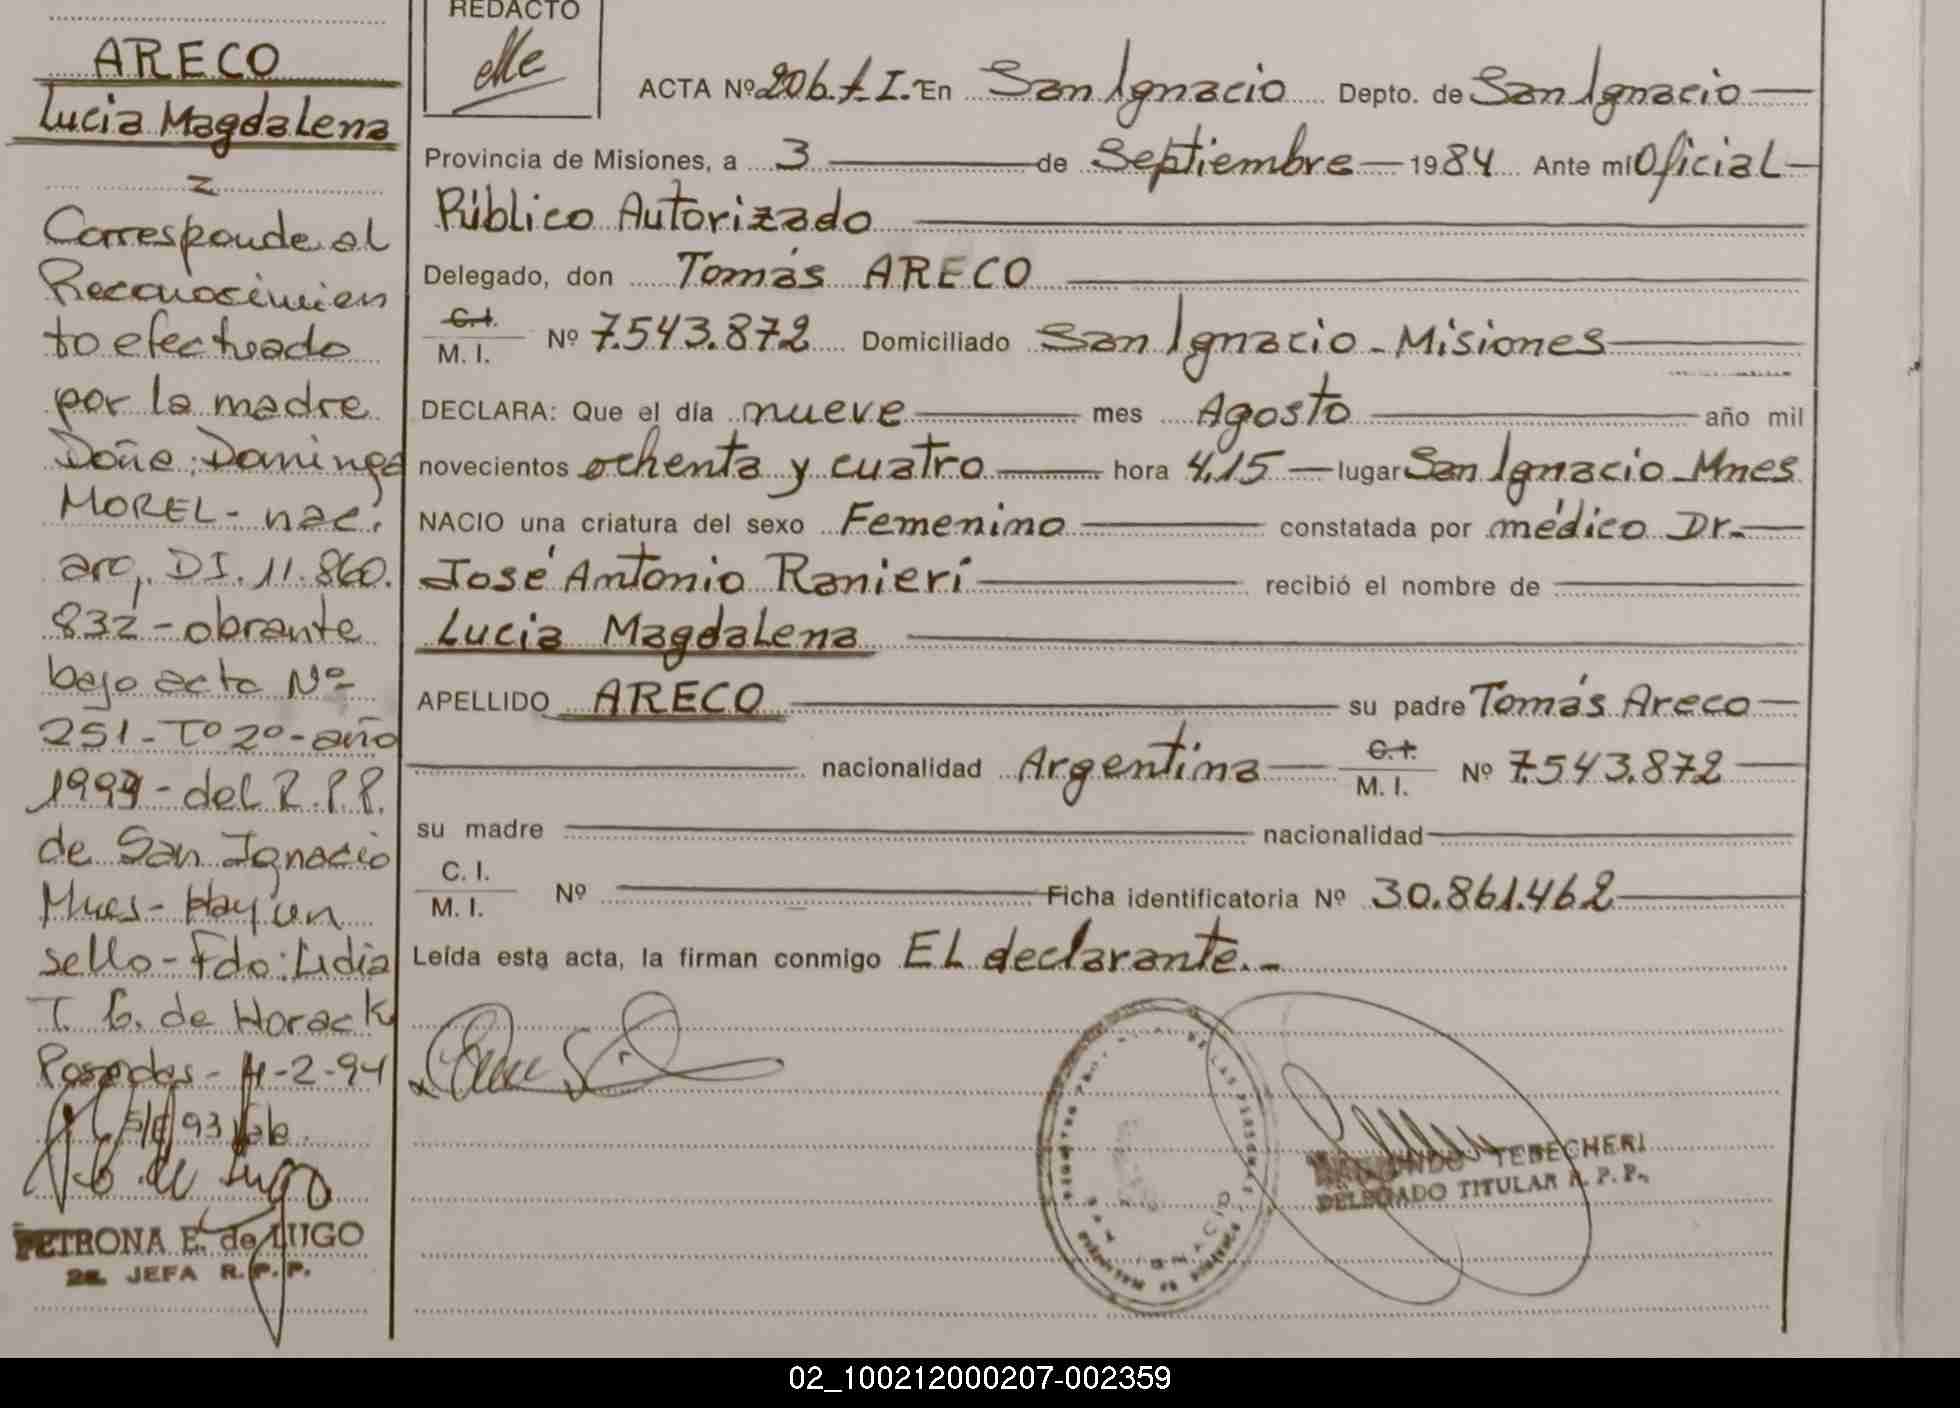 ARECO
Lucia Magdalena
Corresponde al
Reconocimien
to efectuado
por la madre
Doña: Dominga
MOREL - nac.
arg. DI. 11.860.
832 - obrante
bajo acta Nº
251 - Tº 2º - año
1994 - del R.P.P.
de San Ignacio
Mnes - Hay un
sello - Fdo: Lidia
T. G. de Horack
Posadas - 4-2-94
93 Vale.
PETRONA E. de LUGO
2a. JEFA R. P. P.
REDACTO
ACTA Nº 206. f. I. En San Ignacio Depto. de San Ignacio
Provincia de Misiones, a 3 de Septiembre 1984 Ante mí Oficial
Público Autorizado
Delegado, don Tomás ARECO
C. I.
M. I. Nº 7.543.872 Domiciliado San Ignacio - Misiones
DECLARA: Que el día nueve mes Agosto año mil
novecientos ochenta y cuatro hora 4,15 lugar San Ignacio - Mnes
NACIO una criatura del sexo Femenino constatada por médico Dr.
José Antonio Ranieri recibió el nombre de
Lucia Magdalena
APELLIDO ARECO su padre Tomás Areco
nacionalidad Argentina C. I.
M. I. Nº 7.543.872
su madre nacionalidad
C. I.
M. I. Nº Ficha identificatoria Nº 30.861.462
Leída esta acta, la firman conmigo EL declarante.-
TEBECHERI
DELEGADO TITULAR R. P. P.
02_100212000207-002359